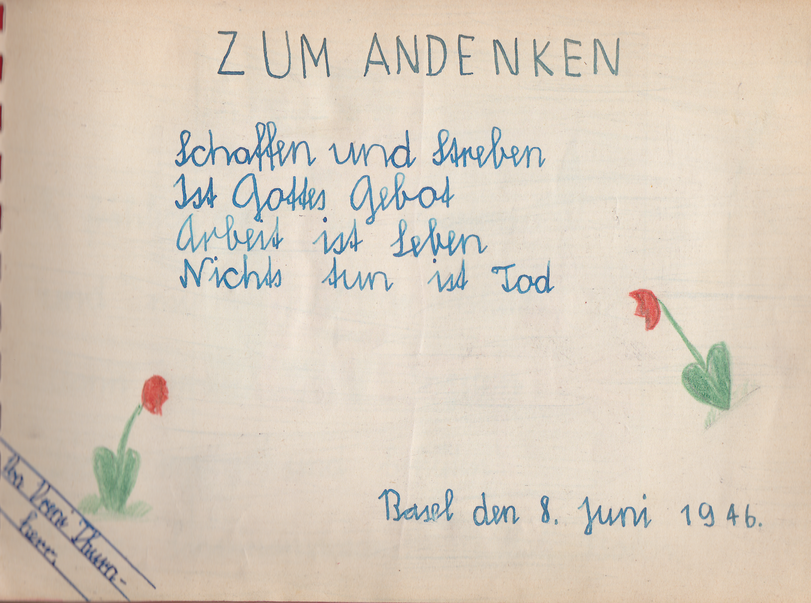 ZUM ANDENKEN
Schaffen und Streben
Ist Gottes Gebot
Arbeit ist Leben
Nichts tun ist Tod
Basel den 8. Juni 1946.
Von Vreni Thurn-
herr.